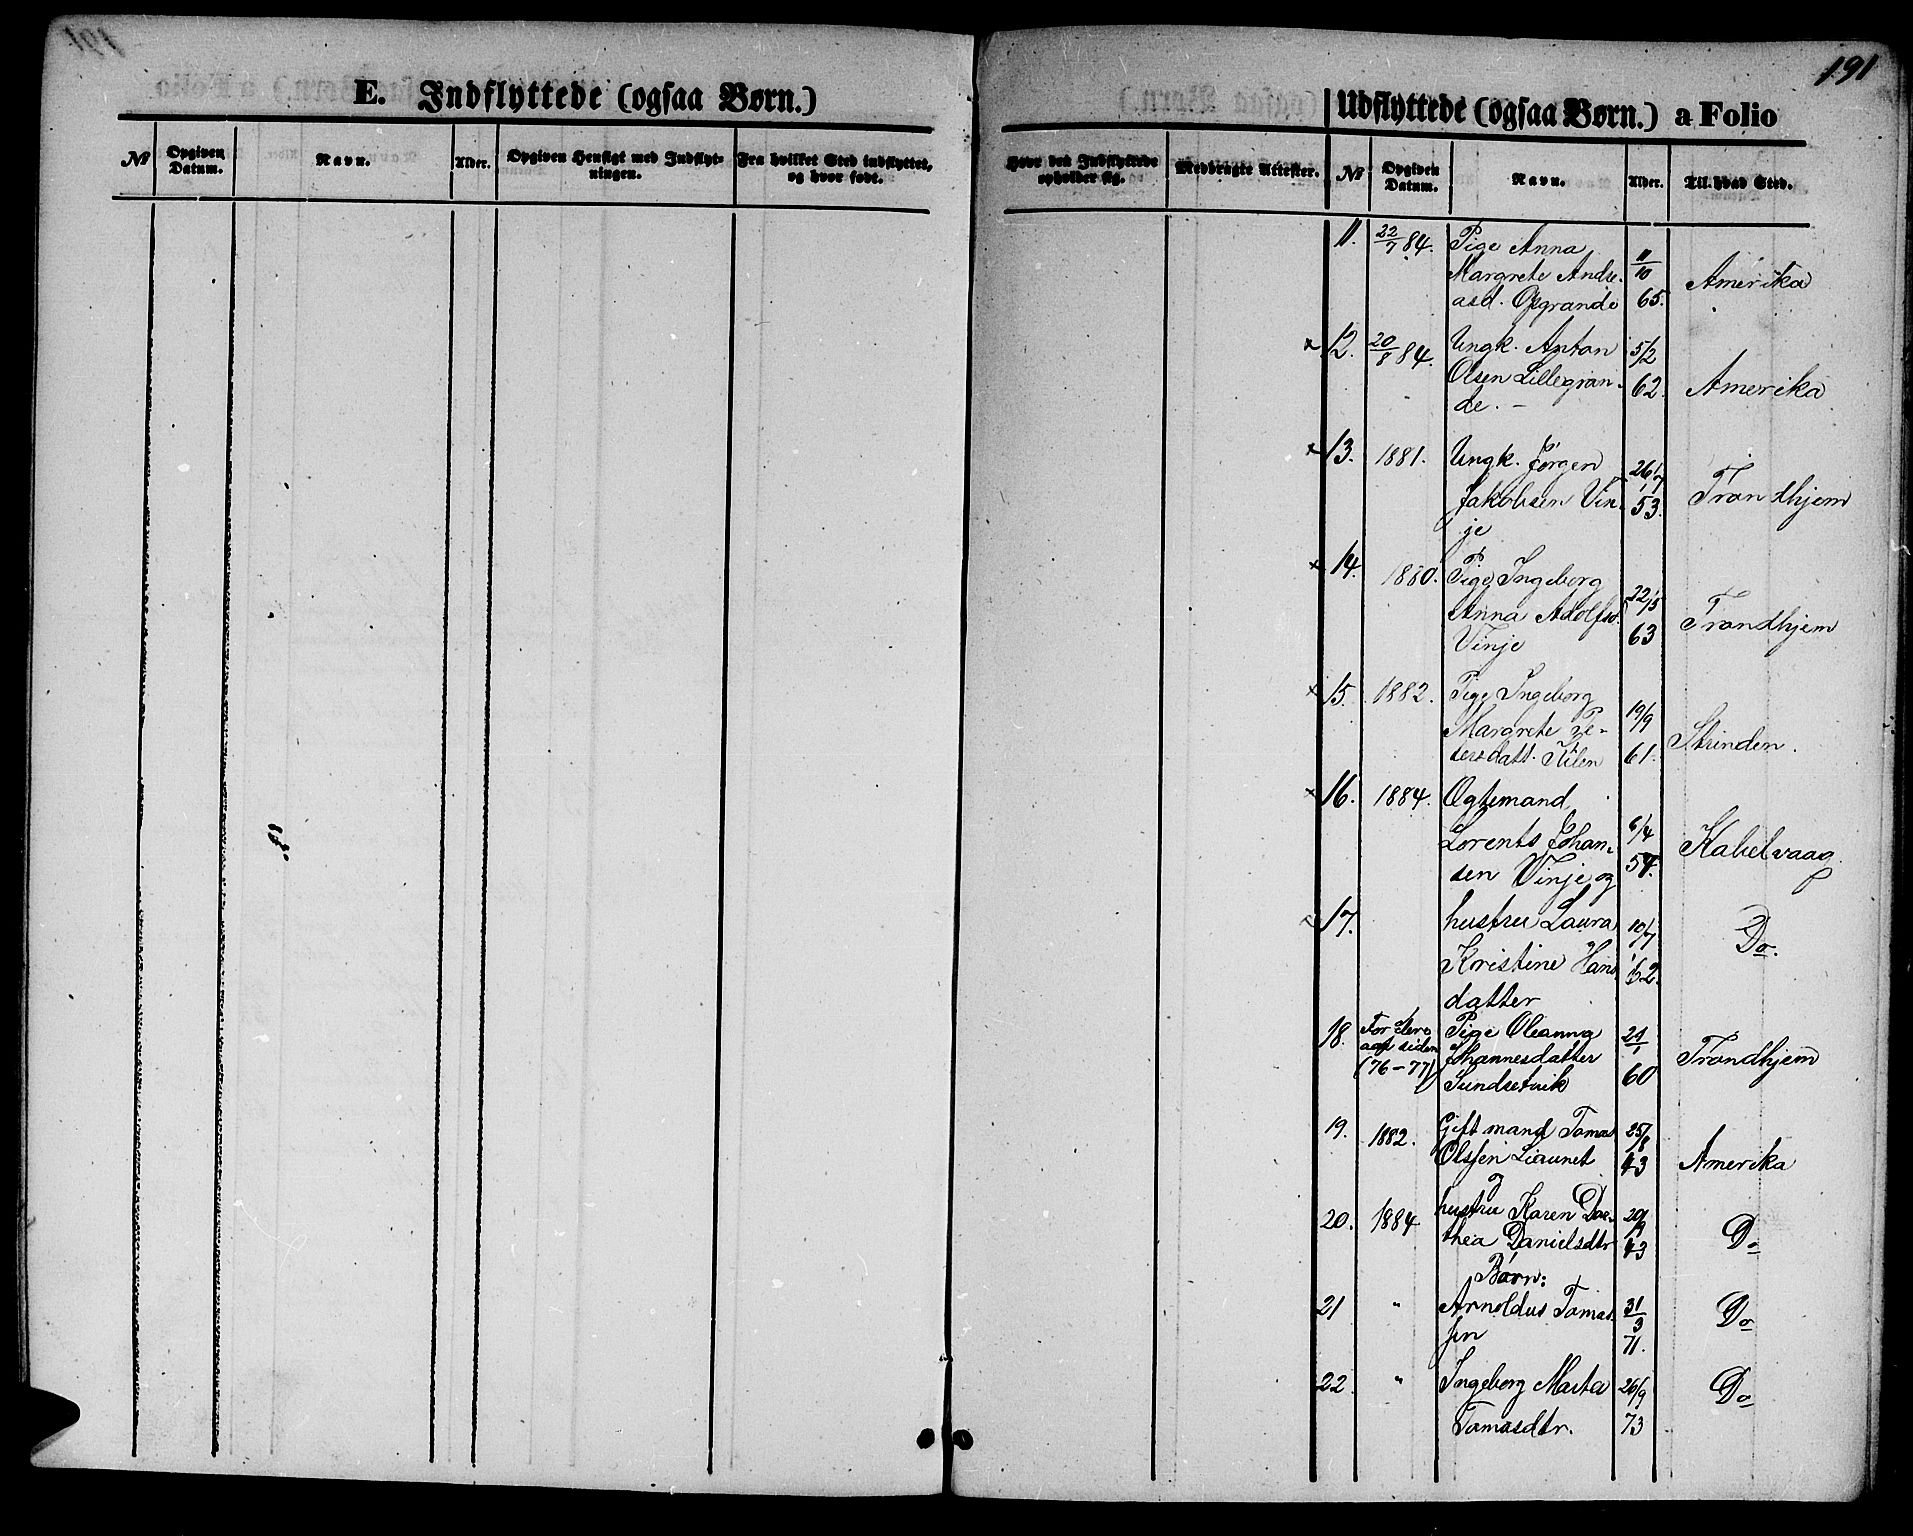 191
E. Indflyttede (ogsaa Børn.)
Udflyttede (ogsaa Børn.) a Folio
№ Opgiven Datum. Navn. Alder. Opgiven Hensigt med Indflytningen. Fra hvilket Sted indflyttet, og hvor født.
Hvor den Indflyttede opholder sig. Medbragte Attester. № Opgiven Datum. Navn. Alder. Til hvad Sted.
11. 22/7 84. Pige Anna
Margrete Andre- 11/10
asd. Opgrande 65. Amerika
× 12. 20/8 84. Ungk. Anton 5/2
Olsen Lillegran- 62. Amerika
de. –
× 13. 1881. Ungk. Jørgen 26/7
Jakobsen Vin- 53. Trondhjem
je
× 14. 1880. Pige Ingeborg
Anna Adolfsd. 22/5
Vinje 63 Trondhjem
× 15. 1882. Pige Ingeborg
Margrete Pe- 19/9
tersdatt. Kilen 61. Strinden.
× 16. 1884. Ogtemand
Lorents Johan- 6/4
sen Vinje og 54. Kabelvaag.
× 17. hustru Laura 10/7
Kristine Hans 62. Do.
datter
18. For flere Pige Oleanna 21/1
aar siden Johannesdatter
(76-77) Sundsetvik 60 Trondhjem
19. 1882. Gift mand Tomas 25/8
Olssen Liaunet 43 Amerika
og
20. 1884 hustru Karen Dor- 20/9
thea Danielsdtr 43 Do
Børn:
21 " Arnoldus Tomas- 31/3
sen 71. Do
22. " Ingeborg Marta 26/9
Tomasdtr. 73 Do